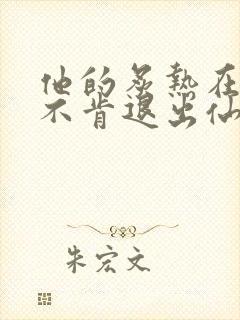 他的炙熱在
不肯退出仙
朱宏文